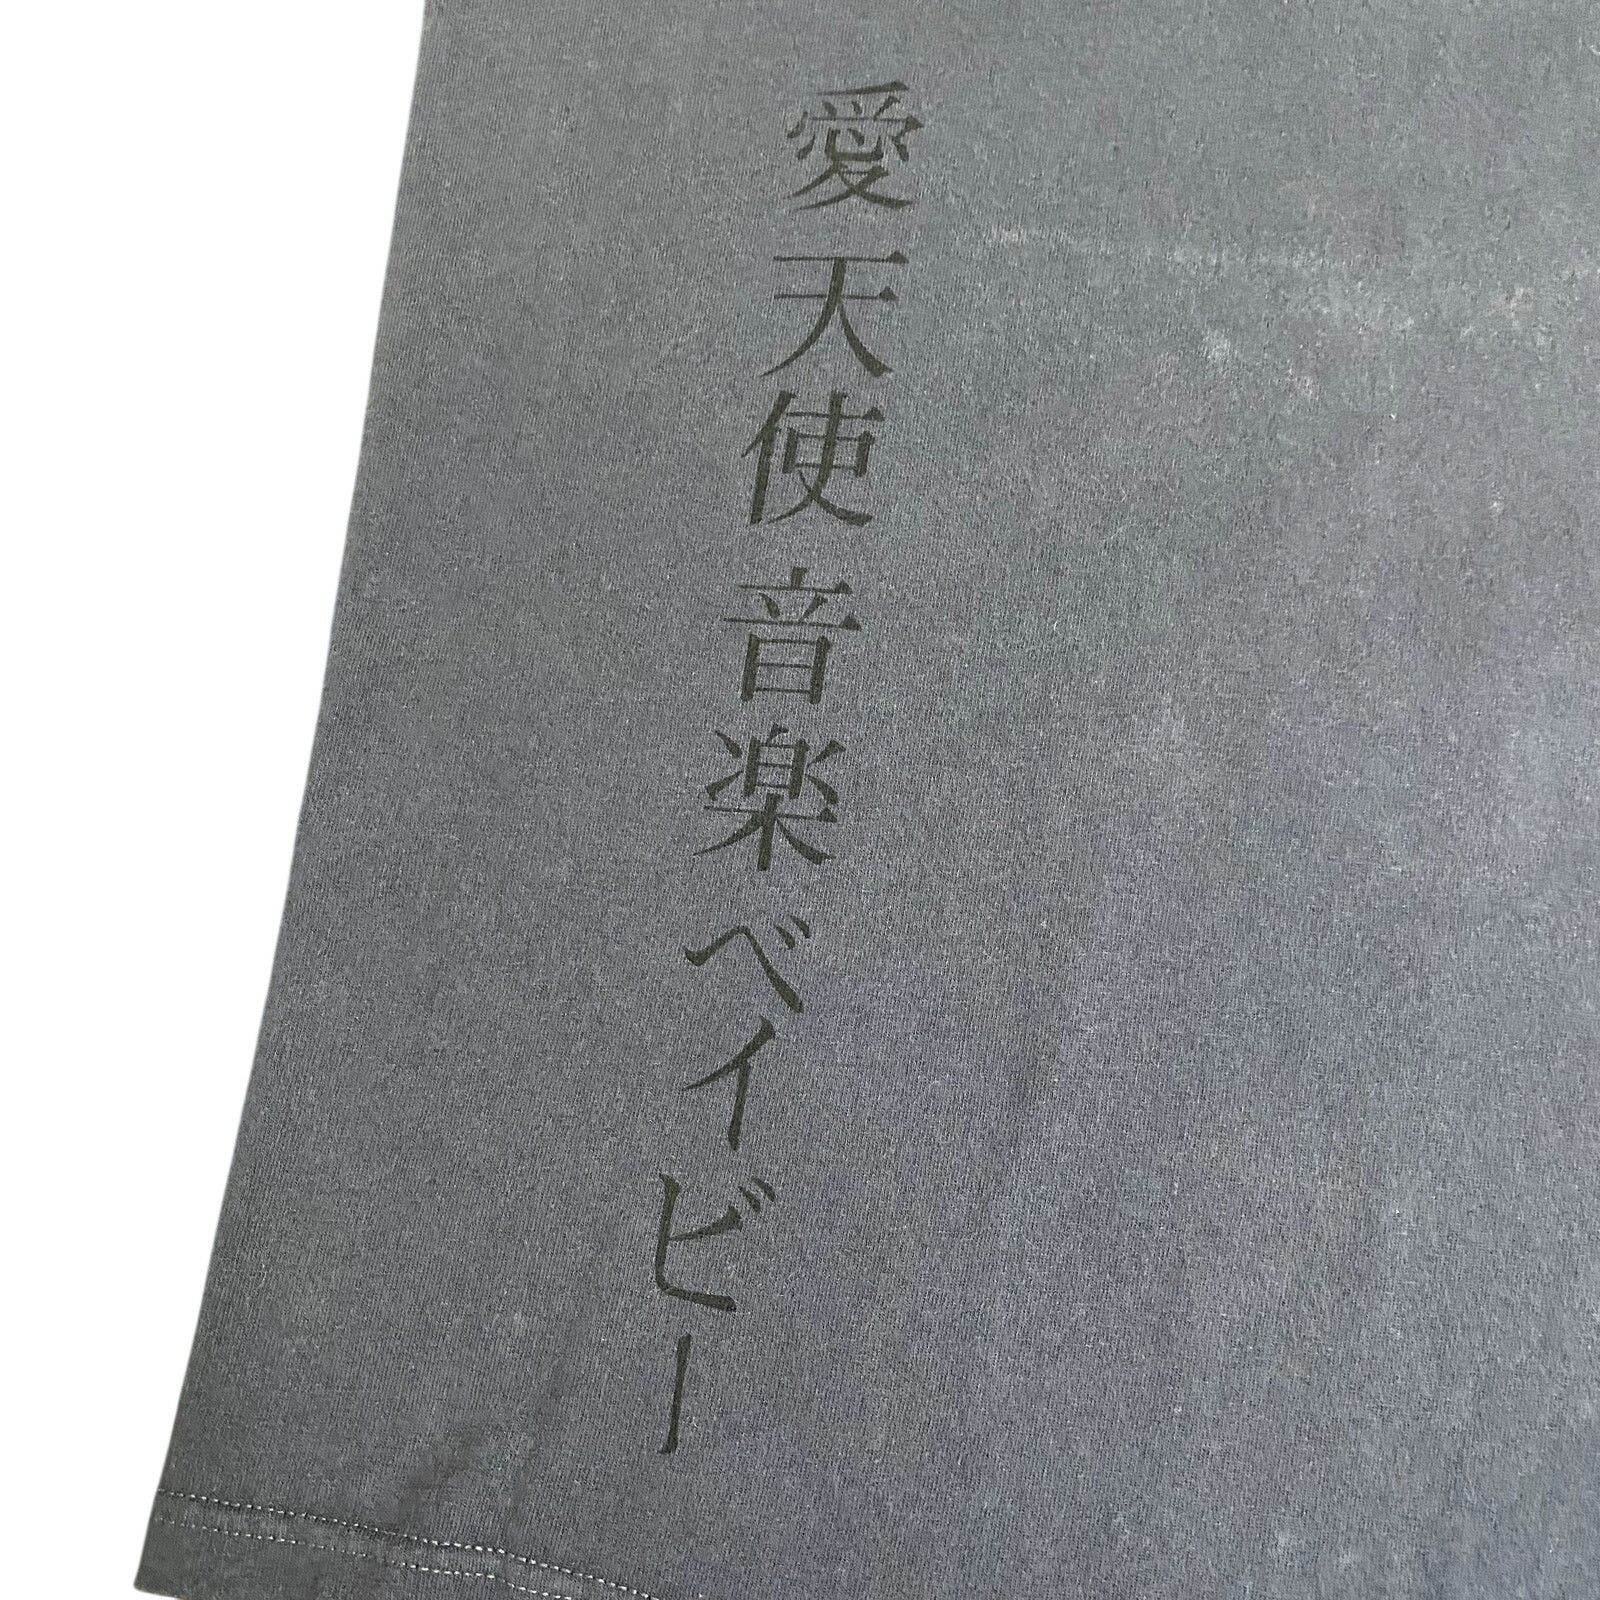 愛 天使 音楽 ベイビー